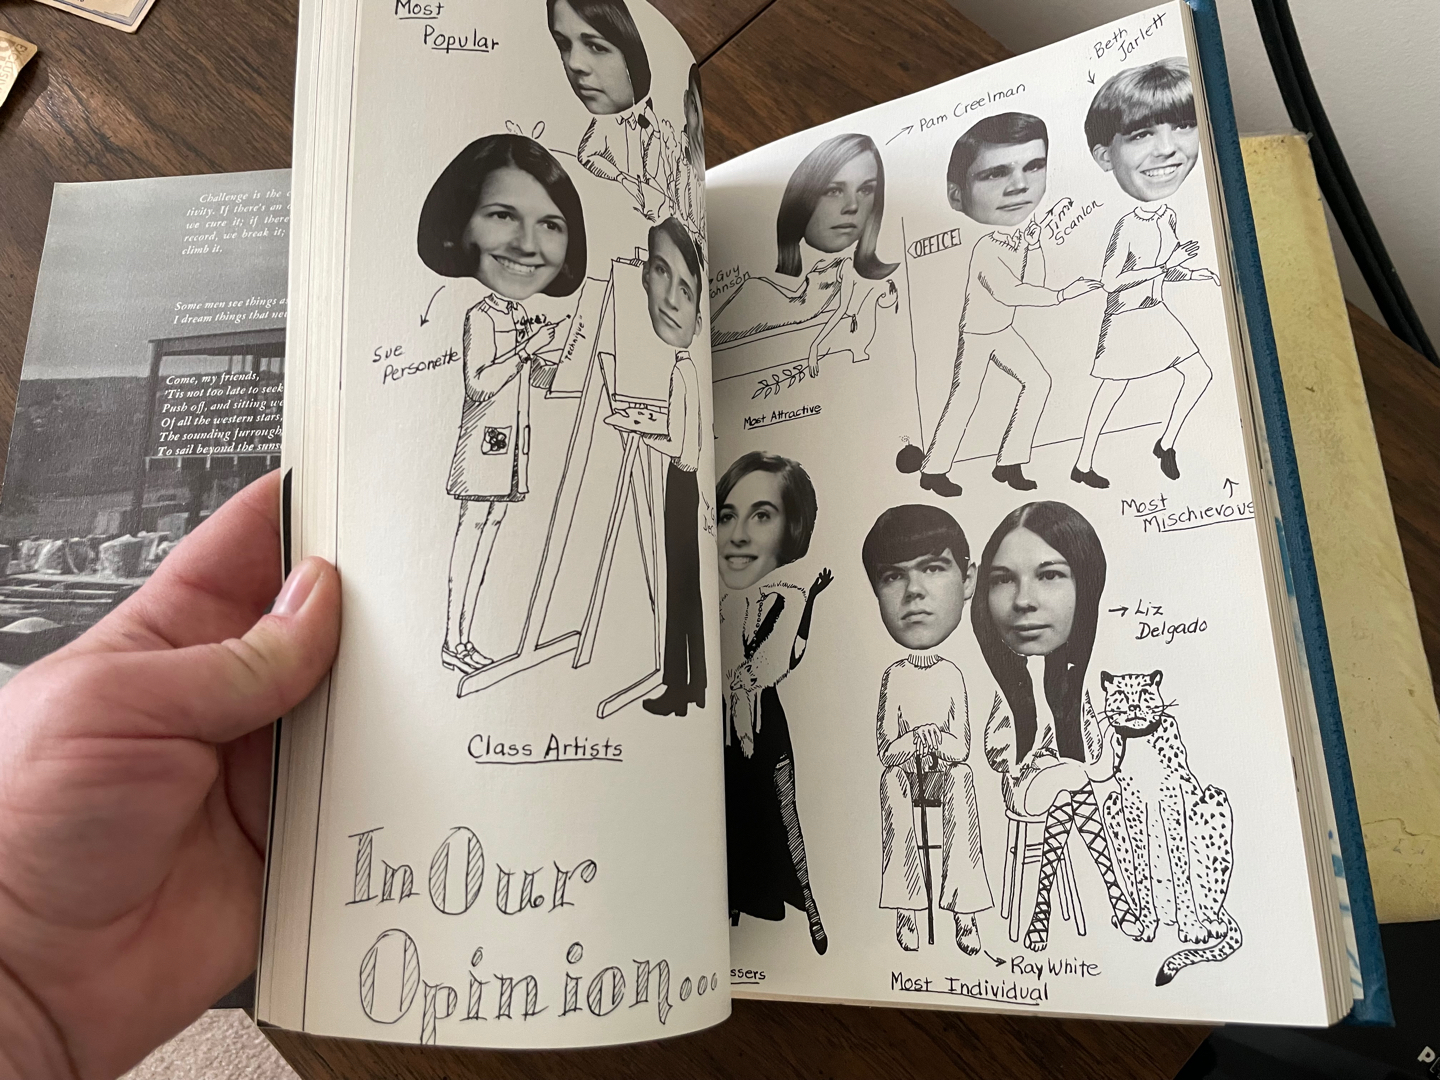 Most
Popular
Sue
Personette
Technique
Class Artists
In Our
Opinion...
Challenge is the
tivity. If there's an
we cure it; if there
record, we break it;
climb it.
Some men see things
I dream things that
Come, my friends,
'Tis not too late to seek
Push off, and sitting
Of all the western stars,
The sounding furrough
To sail beyond the
Pam Creelman
Beth
Jarlett
Jim
Scanlon
OFFICE
Guy
Johnson
Most Attractive
Most
Mischievous
Liz
Delgado
Ray White
Most Individual
ssers